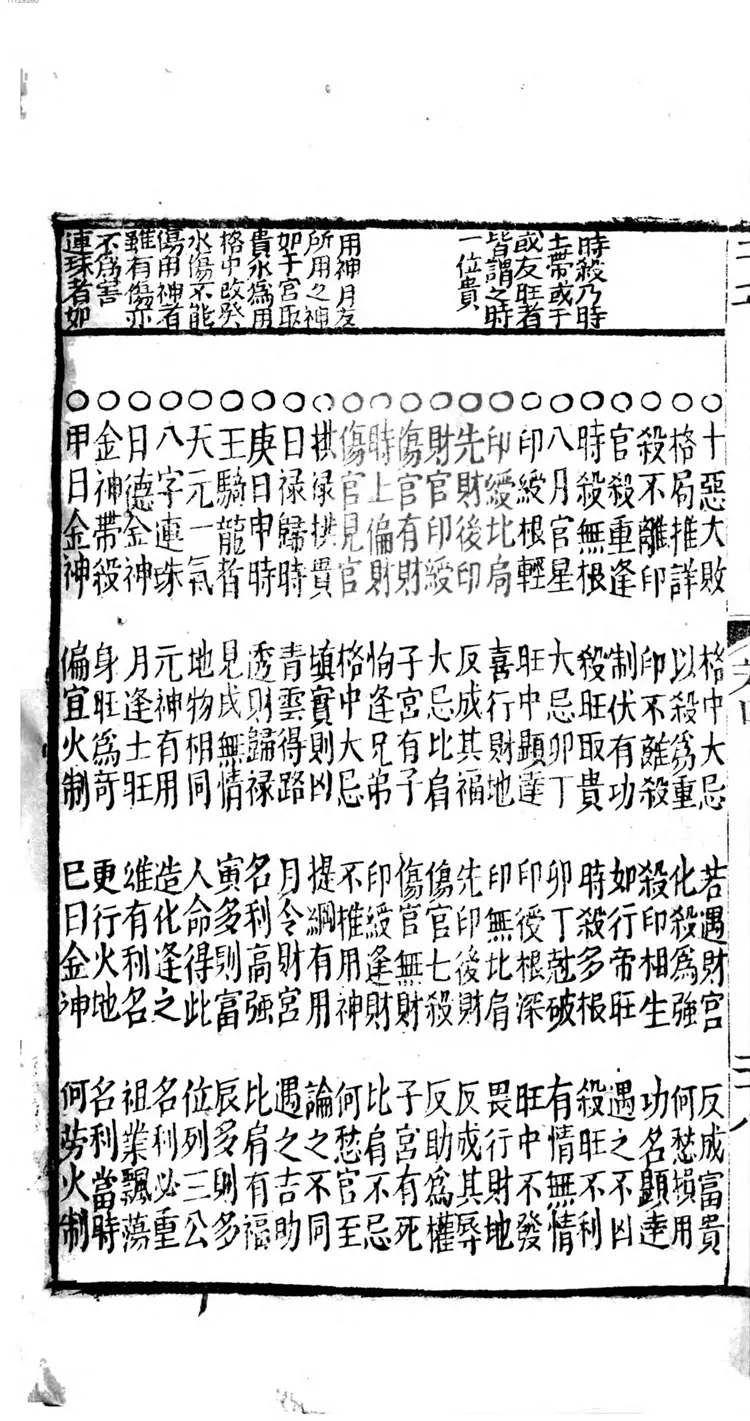 11129260
時殺乃時
上帶或于
或友旺者
皆謂之時
一位貴
用神月友
所用之神
如于宮取
貴水爲用
格中改癸
水傷不能
傷用神者
雖有傷亦
不爲害
連珠者如
○十惡大敗 格中大忌 若遇財宮 反成富貴
○格局推詳 以殺爲重 化殺爲強 何愁損用
○殺不離印 印不離殺 殺印相生 功名顯達
○官殺重逢 制伏有功 如行帝旺 遇之不凶
○時殺無根 殺旺取貴 時殺多根 殺旺不利
○八月官星 大忌卯丁 卯丁尅破 有情無情
○印綬根輕 旺中顯達 印授根深 旺中不發
○印綬比局 喜行財地 印無比肩 畏行財地
○先財後印 反成其福 先印後財 反成其辱
○財官印綬 大忌比肩 傷官七殺 反助爲權
○傷官有財 子宮有子 傷官無財 子宮有死
○時上偏財 怕逢兄弟 印綬逢財 比肩不忌
○傷官見官 格中大忌 不推用神 何愁官至
○拱祿拱貴 填實則凶 提綱有用 論之不同
○日祿歸時 青雲得路 月令財宮 遇之吉助
○庚日申時 透財歸祿 名利高強 比肩有福
○王騎龍背 見戌無情 寅多則富 辰多則多
○天元一氣 地物相同 人命得此 位列三公
○八字連珠 元神有用 造化逢之 名利必重
○日德金神 月逢土旺 維有利名 祖業飄蕩
○金神帶殺 身旺爲奇 更行火地 名利當時
○甲日金神 偏宜火制 巳日金神 何勞火制